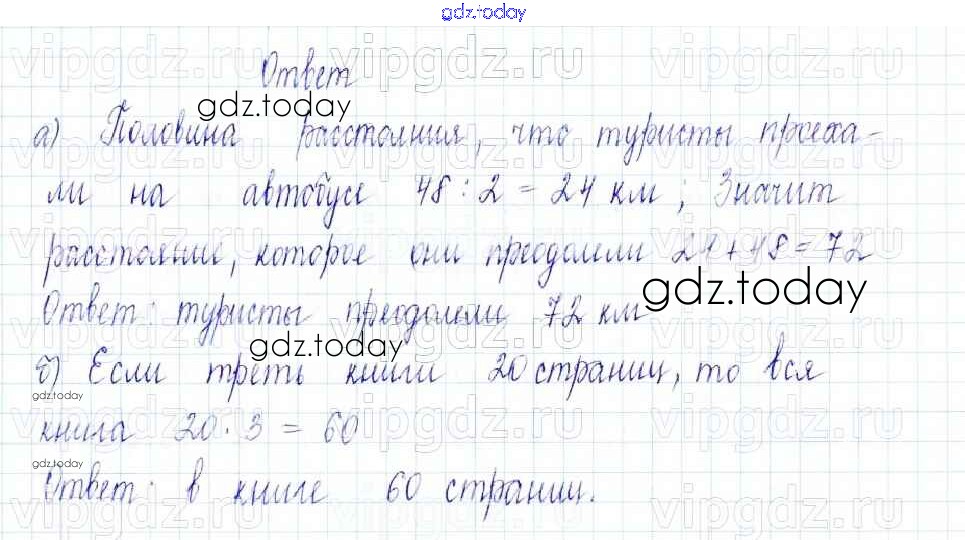 gdz.today
Ответ
а) Половина расстояния, что туристы проеха-
ли на автобусе 48 : 2 = 24 км ; Значит
расстояние, которое они преодолели 24 + 48 = 72
Ответ: туристы преодолели 72 км
б) Если треть книги 20 страниц, то вся
книга 20 · 3 = 60
Ответ: в книге 60 страниц.
vipgdz.ru
gdz.today
gdz.today
gdz.today
gdz.today
gdz.today